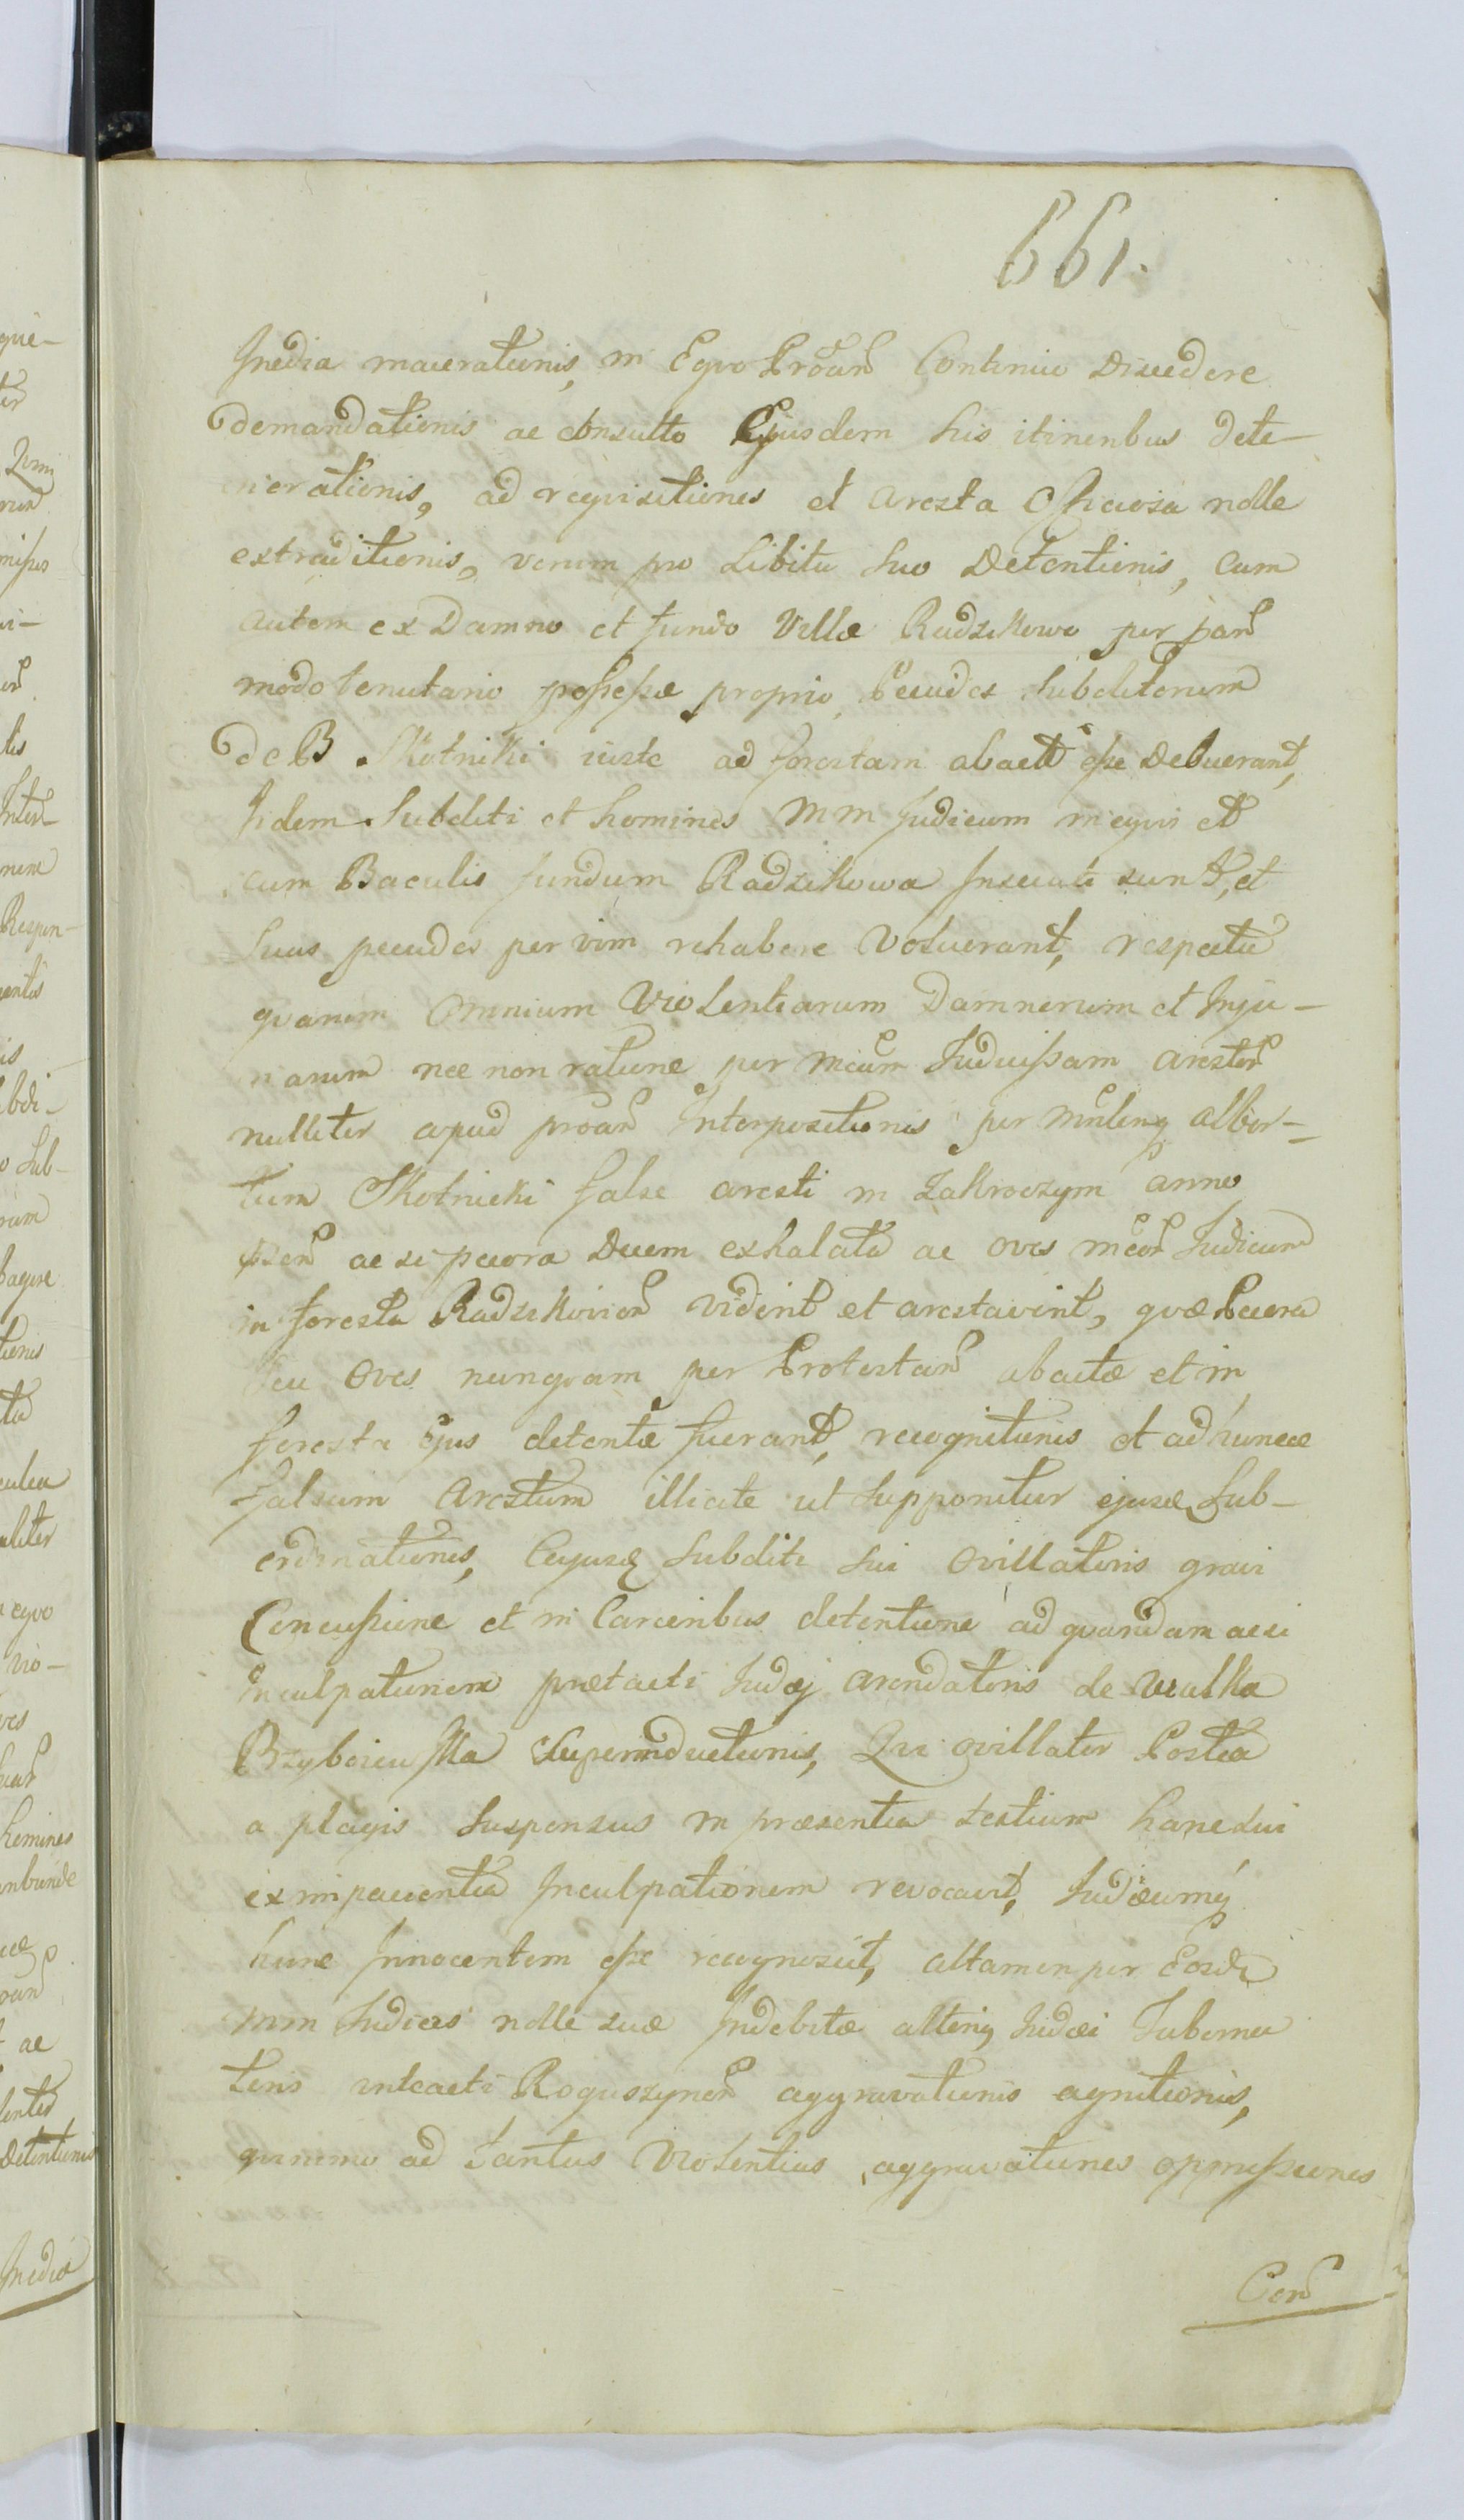 661.
Inedia macerationis, in Equo Proan Continuo Discedere
demandationis ac consulto Ejusdem suis itineribus dete-
riorationis, ad requisitiones et Areszta Officiosa nolle
extraditionis, verum pro Libitu suo Detentionis, cum
autem ex Damno et fundo Villæ Radzikowo per jan
modo tenutario possessæ proprio Pecudes subditorum
de B Skotniki iuste ad forestam abactæ esse Debuerant,
Iidem Subditi et homines MM Judicum in equis et
cum Baculis fundum Radzikowa Insecuti sunt, et
Suas pecudes per vim rehabere Voluerant, respectu
quarum Omnium Violentiarum Damnorum et Inju-
riarum nec non ratione per Mcam Judicissam Areszten
nulliter apud proan Interpositionis per Mnlenq Alber-
tum Skotnicki false aresti in Zakroczym anno
pszen ac si pecora Duem exhalata ac oves mcon Judicum
in foresta Radzikovien viderit et arestaverit, quæ Pecora
seu Oves nunquam per Protestan abactæ et in
foresta ejus detentæ fuerant, recognitionis et ad huncce
falsum Aresztum illicite ut supponitur ejusq Sub-
ordinationis, Cujusq subditi sui Ovillatoris gravi
Concussione et in Carceribus detentione ad quandam acsi
inculpationem prætacti Judæj Arendatoris de Wulka
Przyboiewska Superinductionis, Qui ovillator Postea
a plagis suspensus in præsentia testium hanc sui
ex impacientia Inculpationem revocavit, Judæumq
hunc Innocentem esse recognoscit, attamen per Eosd
MM Judices nolle suæ Indebitæ alteriq Judæi Taberna
toris intacti Roguszynen aggravationis agnitionis,
quinimo ad tantas Violentias aggravationes oppressiones
Con